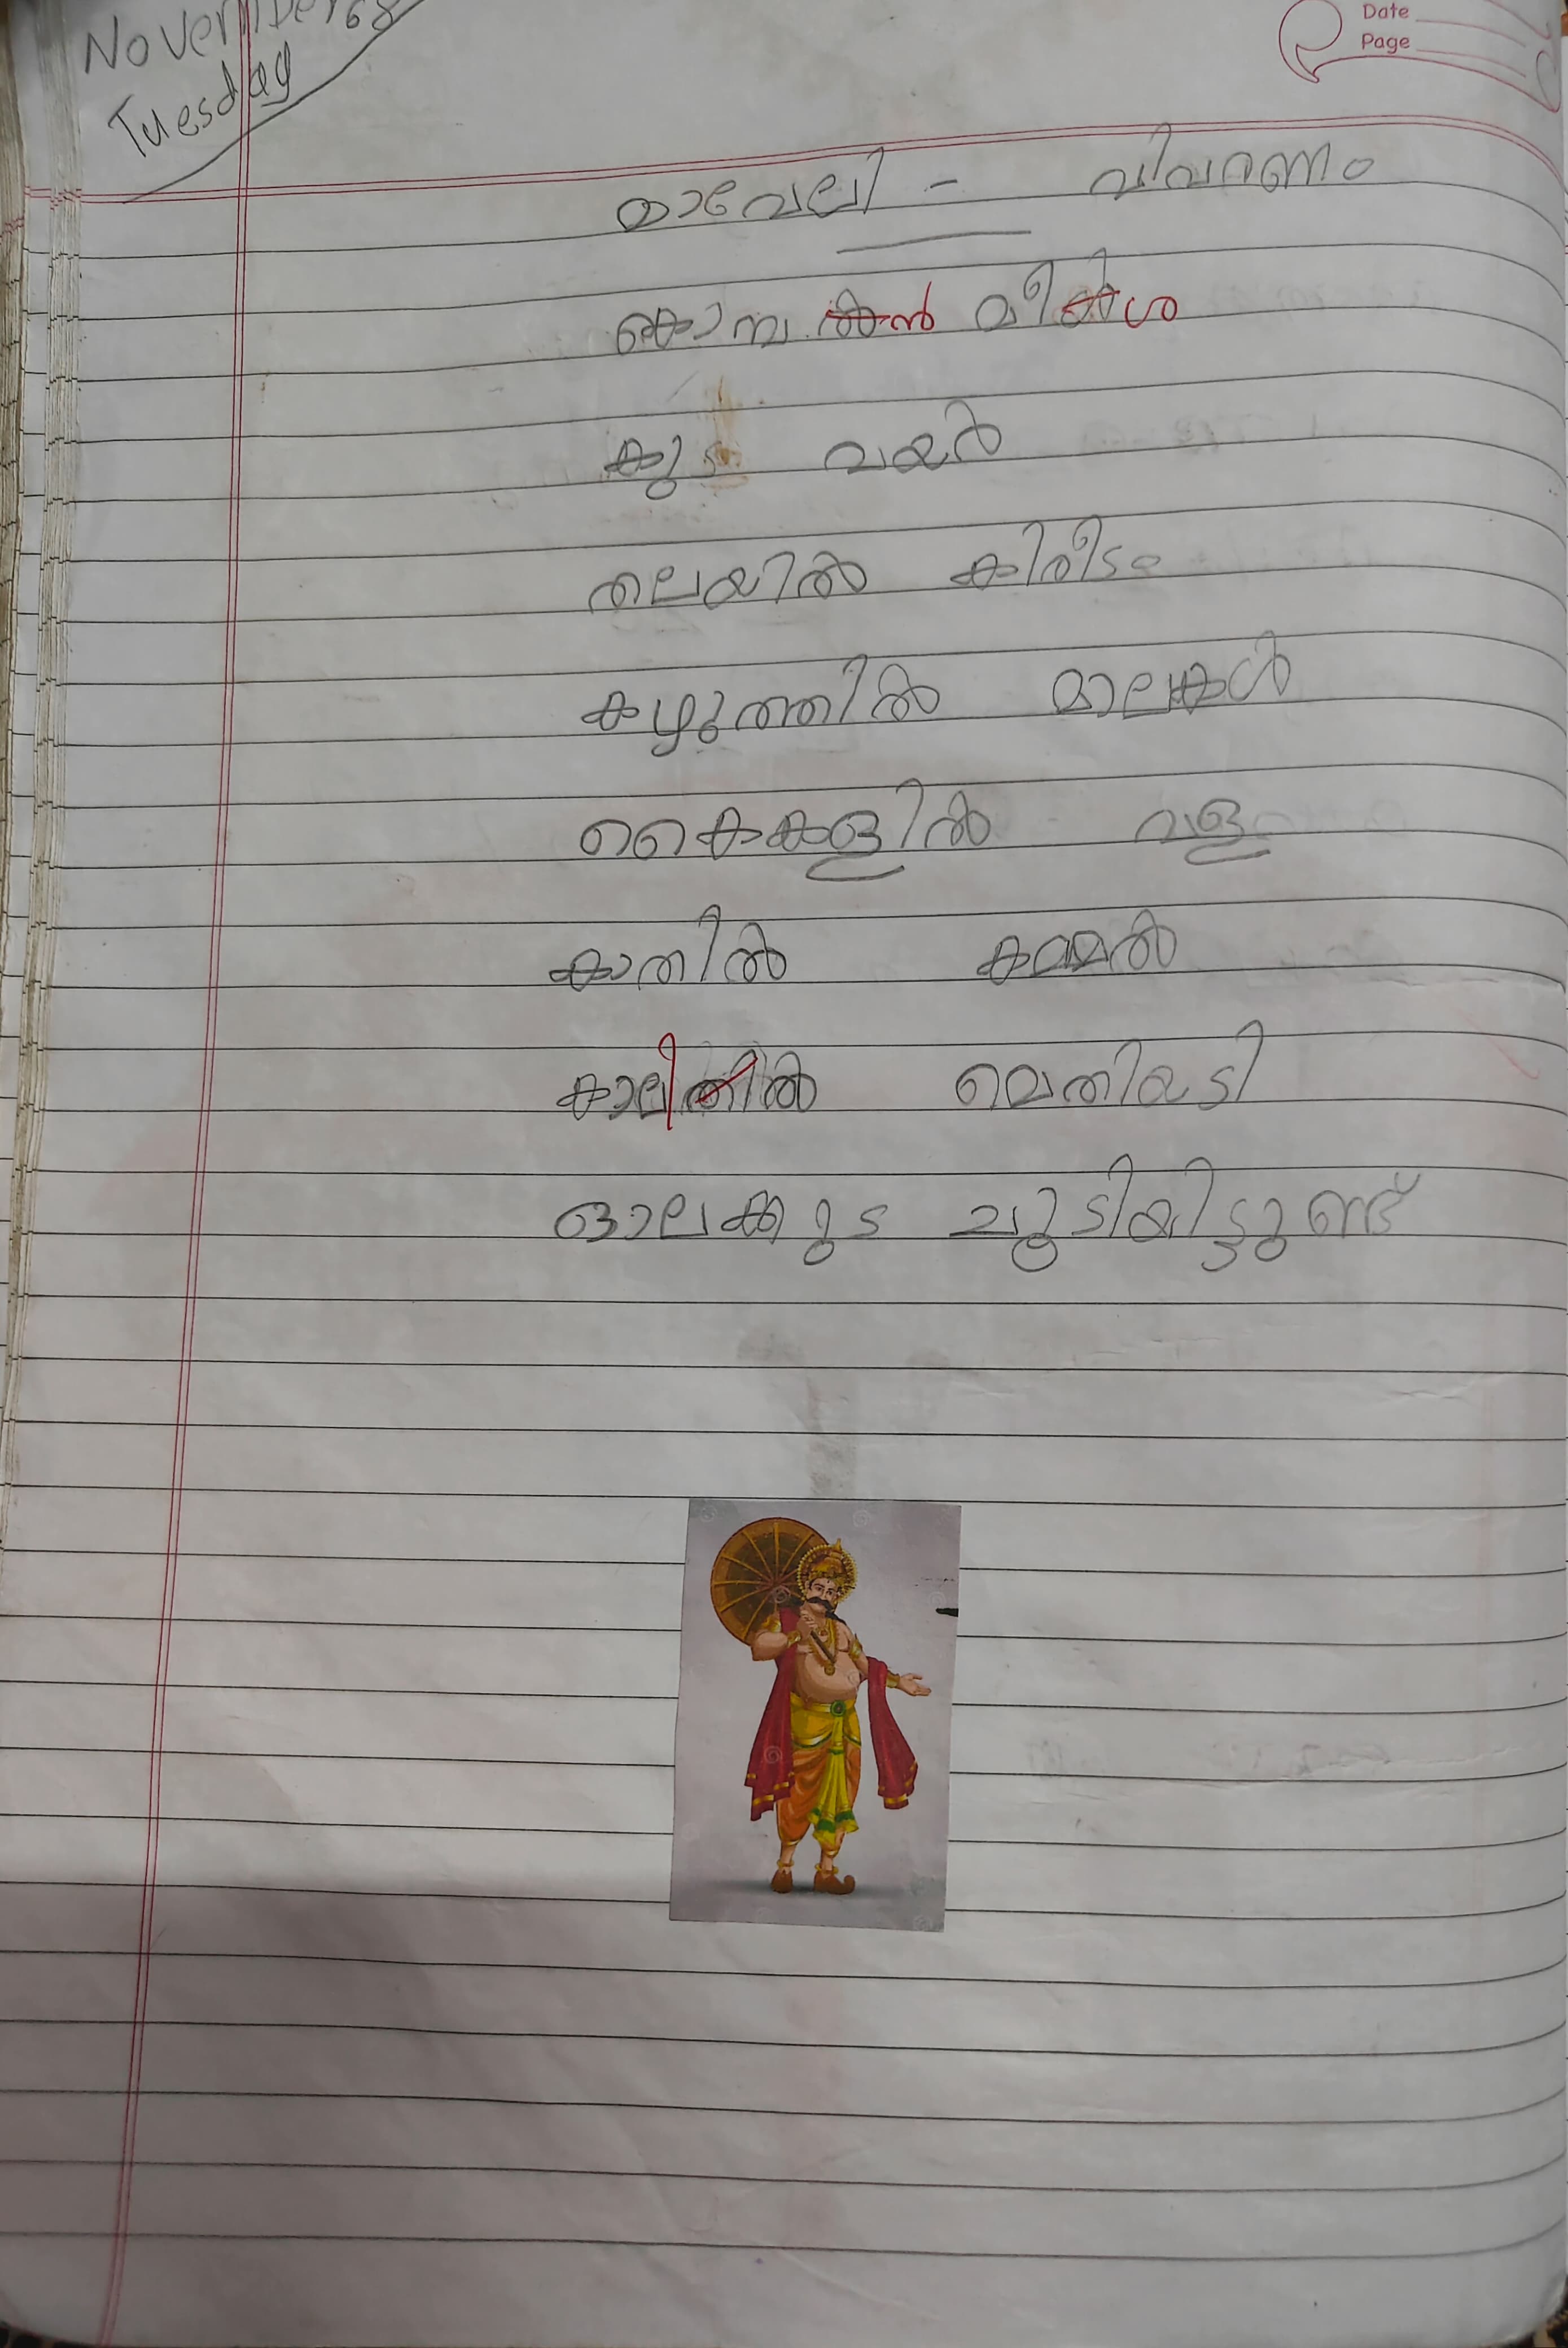 Date
Page
November 68
Tuesday
മാവേലി - വിവരണം
കൊമ്പൻ മീശ
കുട വയർ
തലയിൽ കിരീടം
കഴുത്തിൽ മാലകൾ
കൈകളിൽ വള
കാതിൽ കമ്മൽ
കാലിൽ മെതിയടി
ഓലക്കുട ചൂടിയിട്ടുണ്ട്